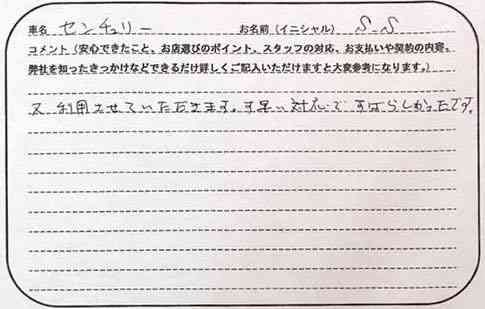 車名 センチュリー お名前(イニシャル) S.S
コメント(安心できたこと、お店選びのポイント、スタッフの対応、お支払いや契約の内容、
弊社を知ったきっかけなどできるだけ詳しくご記入いただけますと大変参考になります。)
又、利用させていただきます。す早い対応ですばらしかったです。